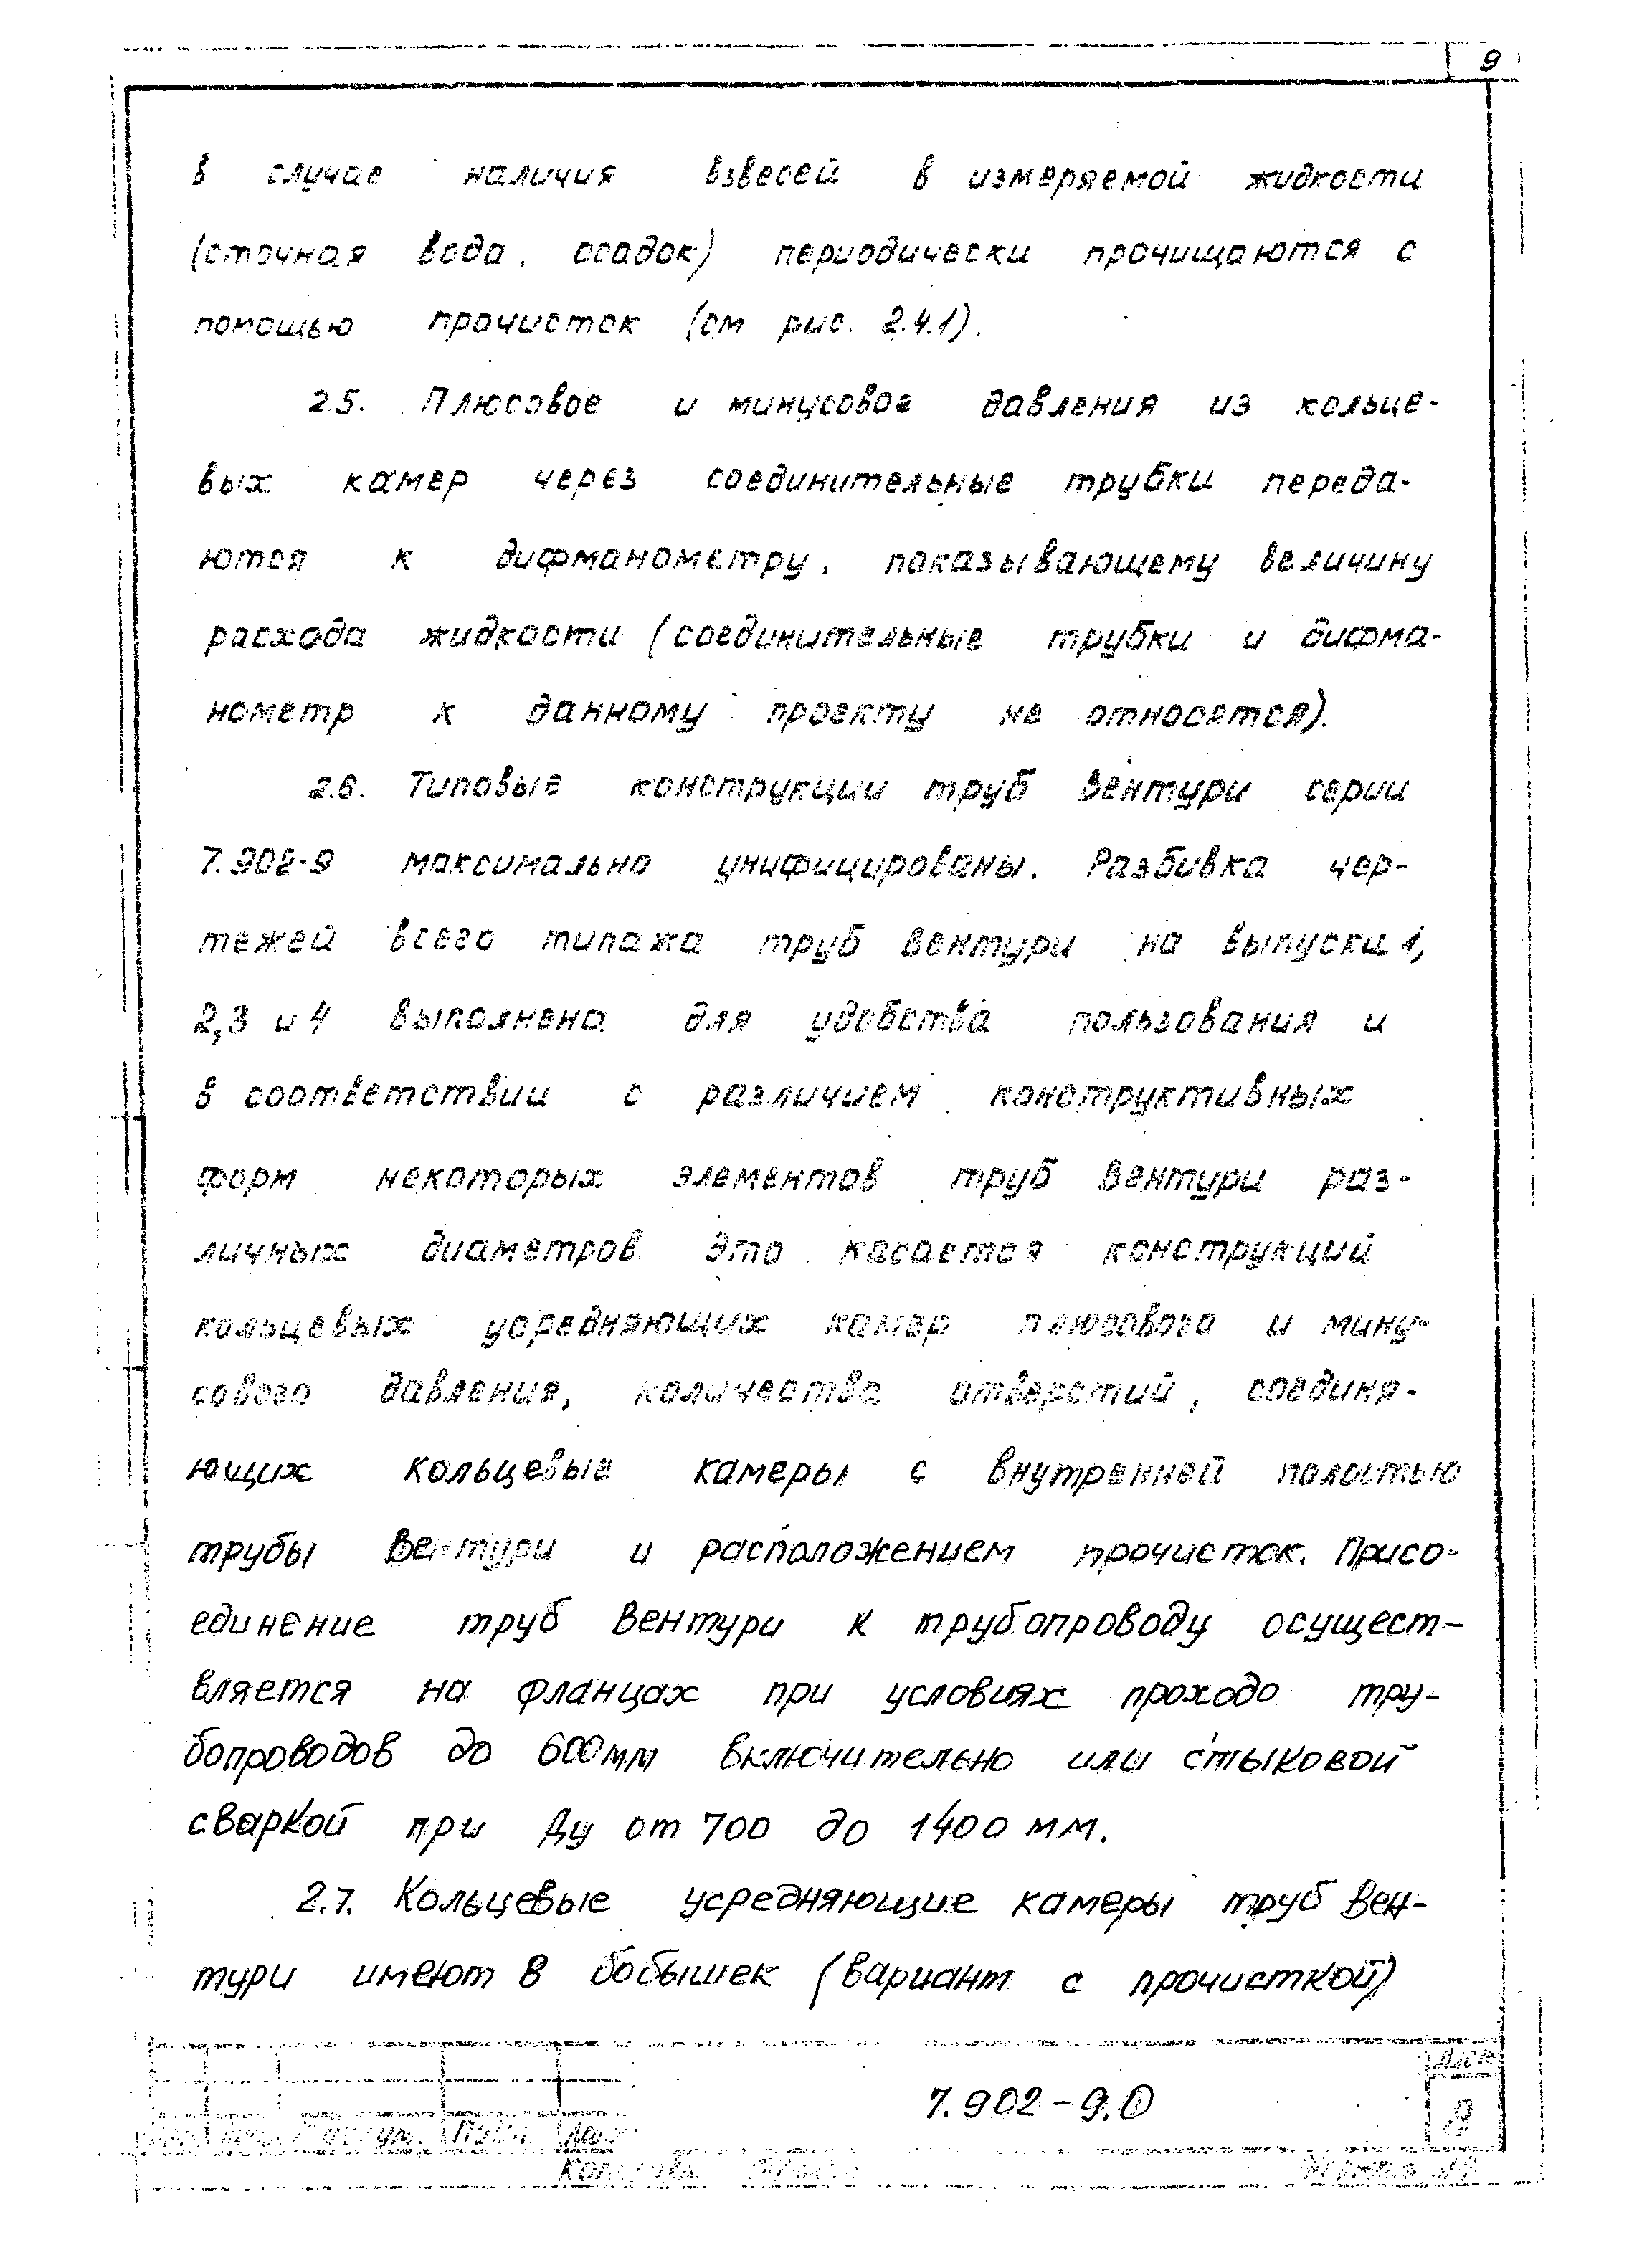 9
в случае наличия взвесей в измеряемой жидкости
(сточная вода, осадок) периодически прочищаются с
помощью прочисток (см рис. 2.4.1).
2.5. Плюсовое и минусовое давления из кольце-
вых камер через соединительные трубки переда-
ются к дифманометру, показывающему величину
расхода жидкости (соединительные трубки и дифма-
нометр к данному проекту не относятся).
2.6. Типовые конструкции труб Вентури серии
7.902-9 максимально унифицированы. Разбивка чер-
тежей всего типажа труб Вентури на выпуски 1,
2,3 и 4 выполнена для удобства пользования и
в соответствии с различием конструктивных
форм некоторых элементов труб Вентури раз-
личных диаметров. Это касается конструкций
кольцевых усредняющих камер плюсового и мину-
сового давления, количества отверстий, соединя-
ющих кольцевые камеры с внутренней полостью
трубы Вентури и расположением прочисток. Присо-
единение труб Вентури к трубопроводу осущест-
вляется на фланцах при условиях проходо тру-
бопроводов до 600мм включительно или стыковой
сваркой при Ду от 700 до 1400 мм.
2.7. Кольцевые усредняющие камеры труб Вен-
тури имеют 8 бобышек (вариант с прочисткой)
Лист
7.902-9.0